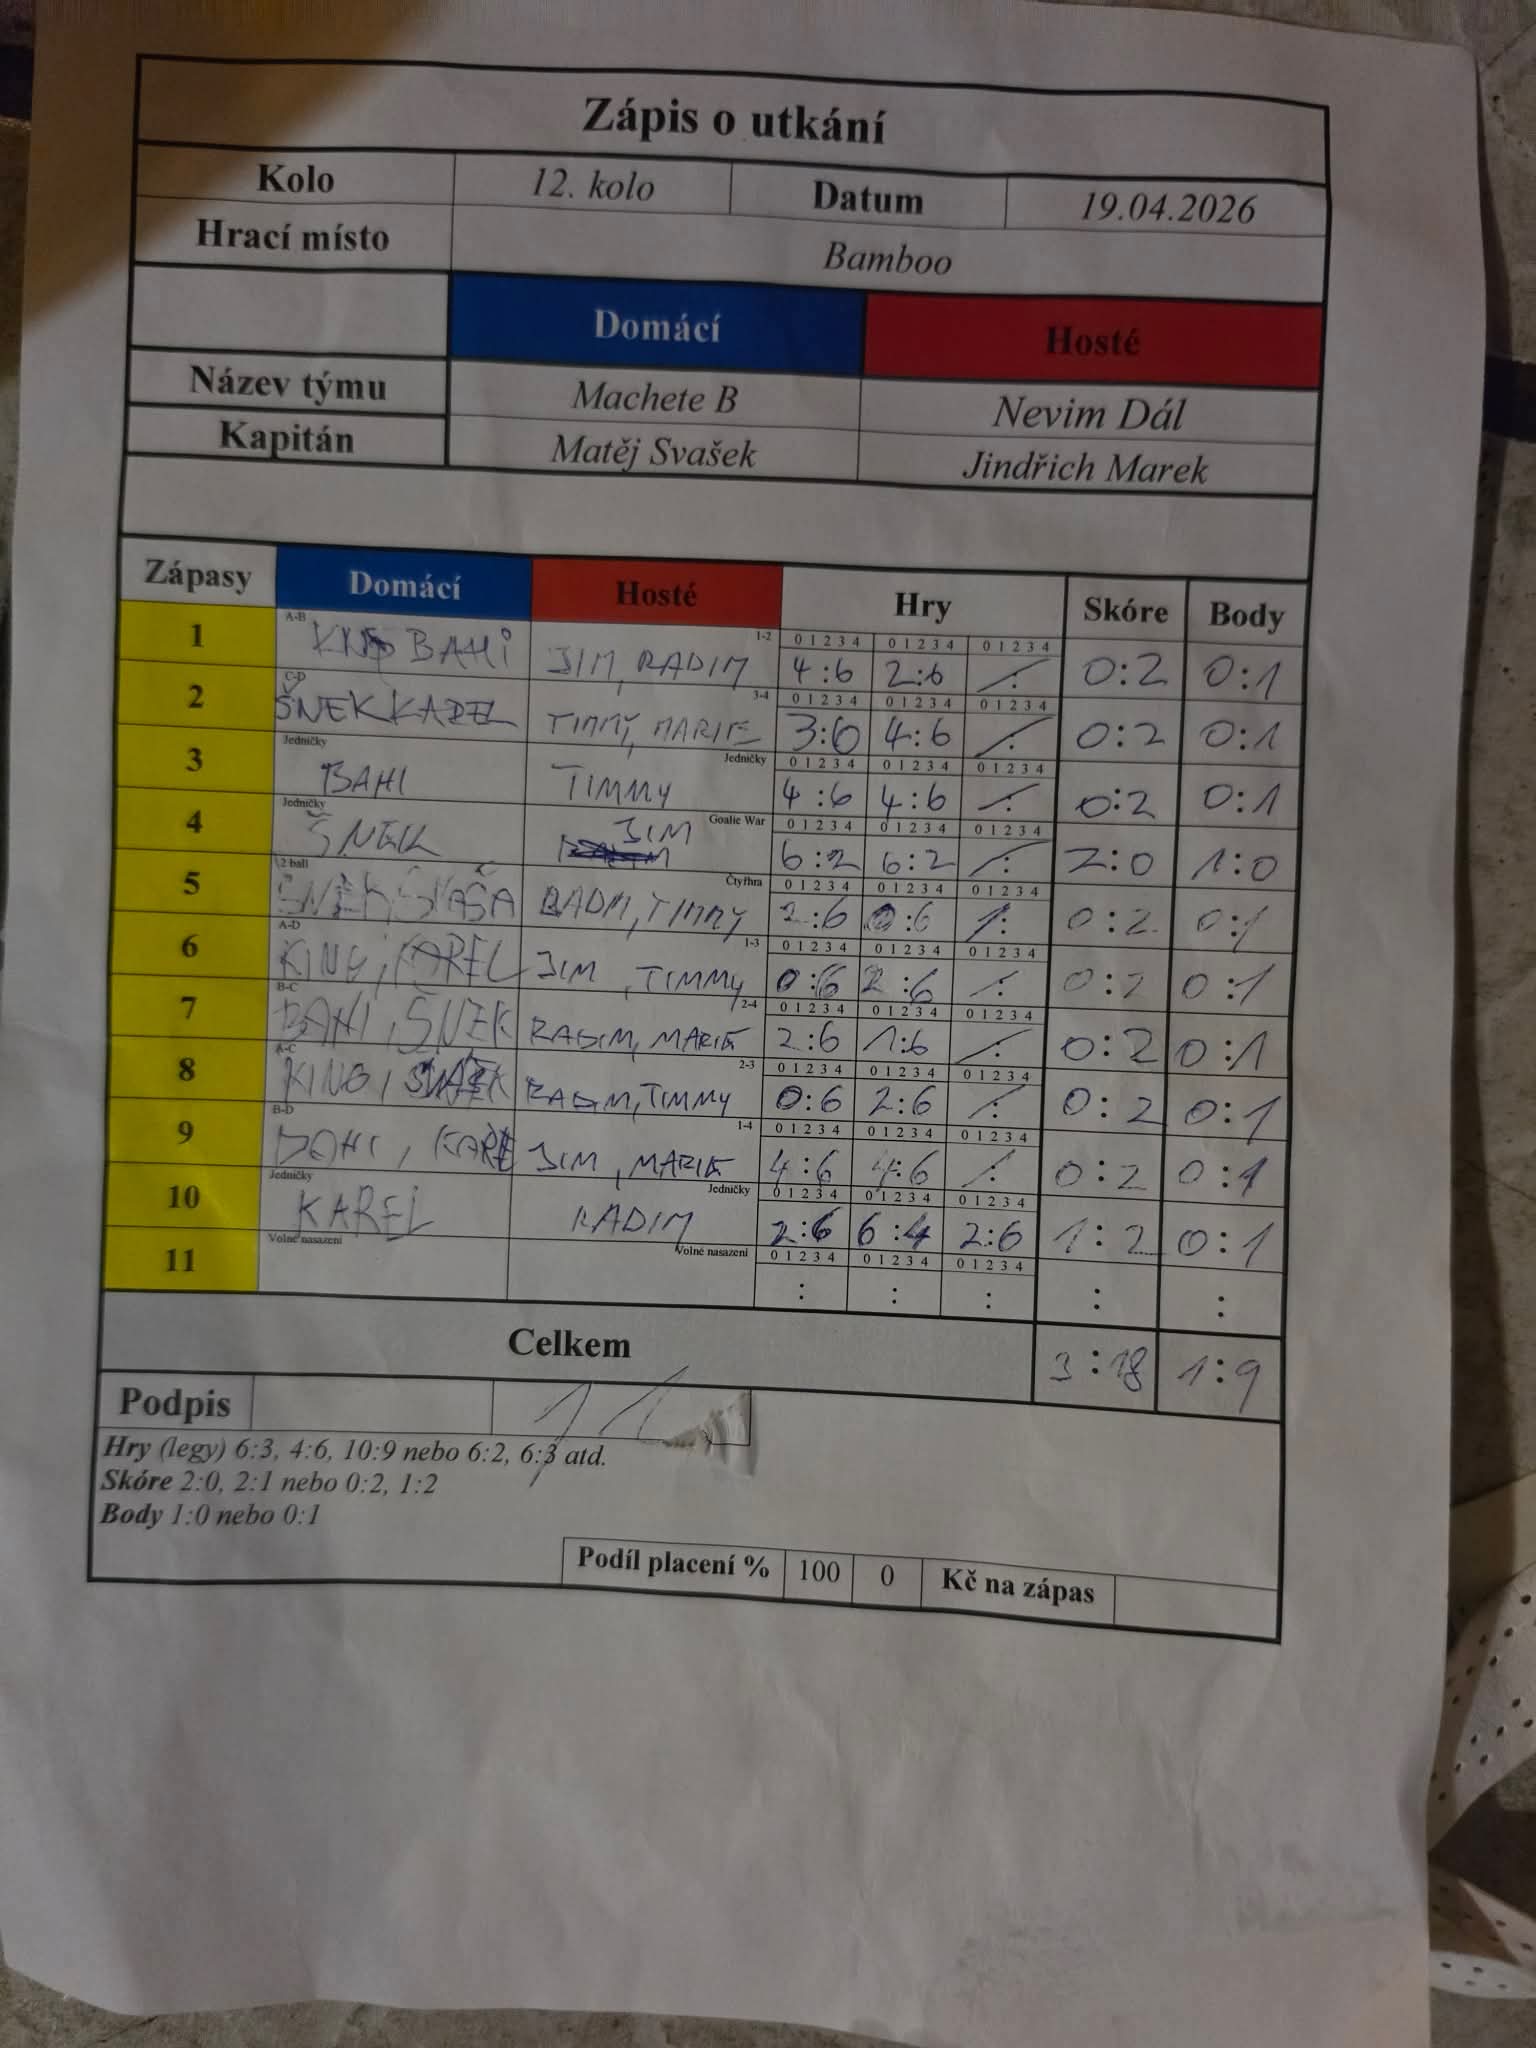 Zápis o utkání
Kolo 12. kolo Datum 19.04.2026
Hrací místo Bamboo
Domácí Hosté
Název týmu Machete B Nevim Dál
Kapitán Matěj Svašek Jindřich Marek
Zápasy Domácí Hosté Hry Skóre Body
A-B 1-2 0 1 2 3 4 0 1 2 3 4 0 1 2 3 4
1 BAHI JIM, RADIM 4:6 2:6 : 0:2 0:1
C-D 3-4 0 1 2 3 4 0 1 2 3 4 0 1 2 3 4
2 ŠNEK KAREL TIMMY, MARIE 3:6 4:6 : 0:2 0:1
Jedničky Jedničky 0 1 2 3 4 0 1 2 3 4 0 1 2 3 4
3 BAHI TIMMY 4:6 4:6 : 0:2 0:1
Jedničky Goalie War 0 1 2 3 4 0 1 2 3 4 0 1 2 3 4
4 ŠNEK JIM 6:2 6:2 : 2:0 1:0
2 ball Čtyřhra 0 1 2 3 4 0 1 2 3 4 0 1 2 3 4
5 ŠNEK, SVAŠA RADIM, TIMMY 2:6 0:6 : 0:2 0:1
A-D 1-3 0 1 2 3 4 0 1 2 3 4 0 1 2 3 4
6 KING, KAREL JIM, TIMMY 0:6 2:6 : 0:2 0:1
B-C 2-4 0 1 2 3 4 0 1 2 3 4 0 1 2 3 4
7 BAHI, ŠNEK RADIM, MARIE 2:6 1:6 : 0:2 0:1
A-C 2-3 0 1 2 3 4 0 1 2 3 4 0 1 2 3 4
8 KING, RADIM, TIMMY 0:6 2:6 : 0:2 0:1
B-D 1-4 0 1 2 3 4 0 1 2 3 4 0 1 2 3 4
9 BAHI, KAREL JIM, MARIE 4:6 4:6 : 0:2 0:1
Jedničky Jedničky 0 1 2 3 4 0 1 2 3 4 0 1 2 3 4
10 KAREL RADIM 2:6 6:4 2:6 1:2 0:1
Volné nasazení Volné nasazení 0 1 2 3 4 0 1 2 3 4 0 1 2 3 4
11 : : : : :
Celkem 3:18 1:9
Podpis
Hry (legy) 6:3, 4:6, 10:9 nebo 6:2, 6:3 atd.
Skóre 2:0, 2:1 nebo 0:2, 1:2
Body 1:0 nebo 0:1
Podíl placení % 100 0 Kč na zápas